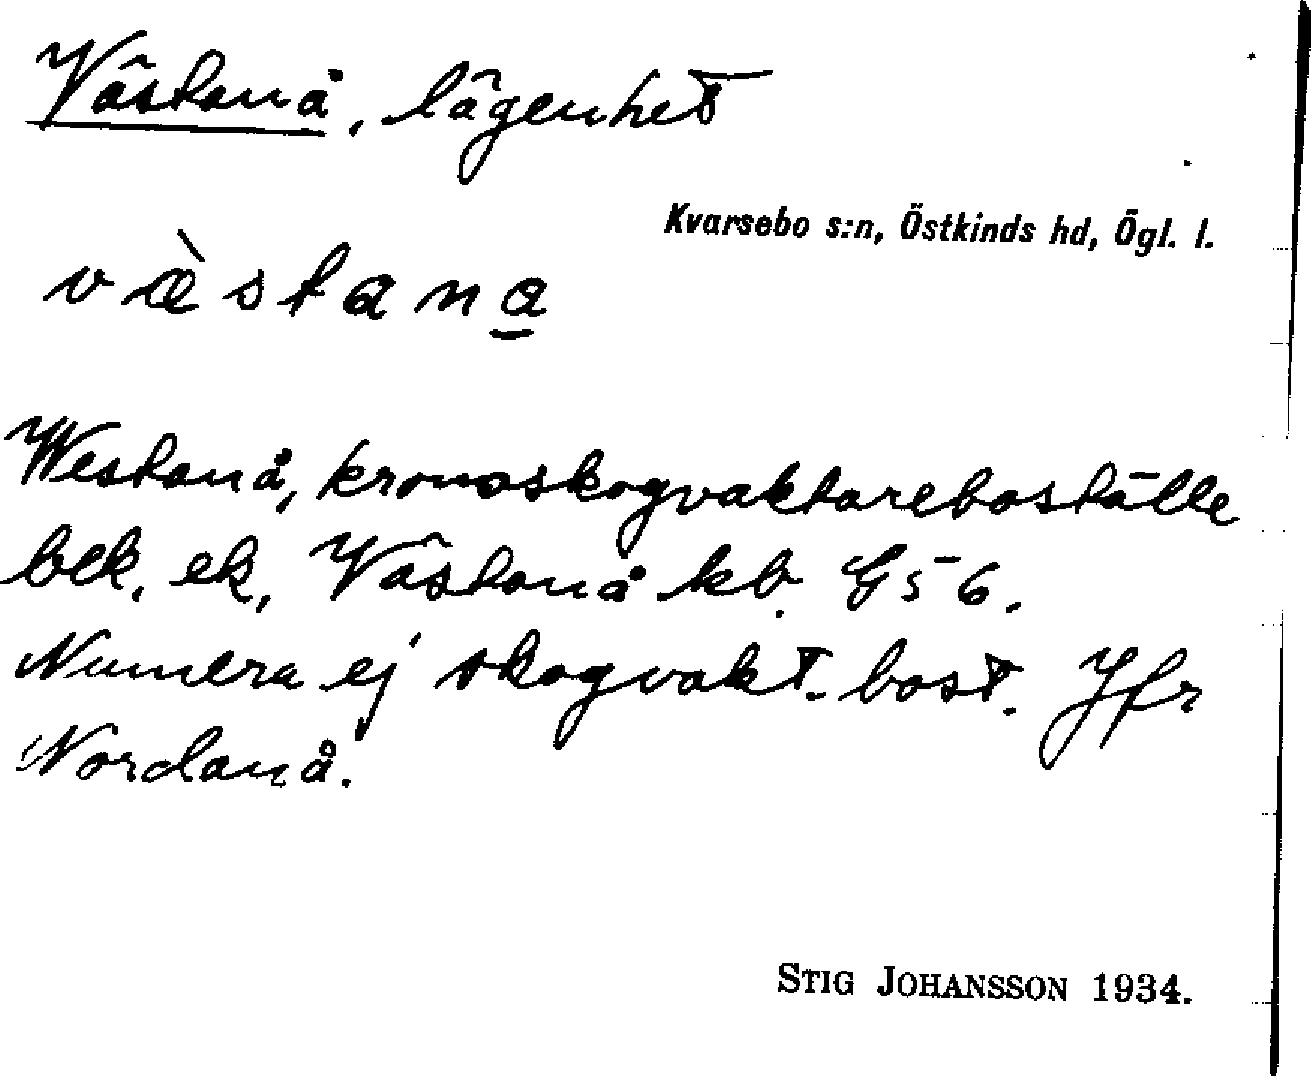 Västanå, lägenhet
Kvarsebo s:n, Östkinds hd, Ögl. l.
væ̀stana̱
Westanå, kronoskogvaktareboställe
bek. ek, Västanå kb. G56.
Numera ej skogvakt. bost. Jfr
Nordanå.
STIG JOHANSSON 1934.